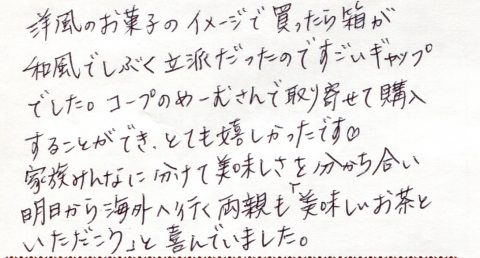 洋風のお菓子のイメージで買ったら箱が
和風でしぶく立派だったのですごいギャップ
でした。コープのめーむさんで取り寄せて購入
することができ、とても嬉しかったです♡
家族みんなに分けて美味しさを分かち合い
明日から海外へ行く両親も「美味しいお茶と
いただこう」と喜んでいました。